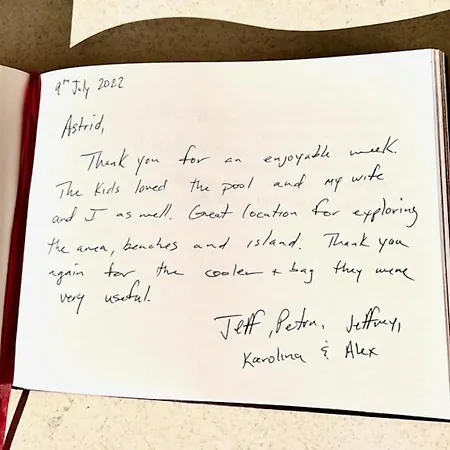 9th July 2022
Astrid,
Thank you for an enjoyable week.
The kids loved the pool and my wife
and I as well. Great location for exploring
the area, beaches and island. Thank you
again for the cooler + bag they were
very useful.
Jeff, Petra, Jeffrey,
Karolina & Alex